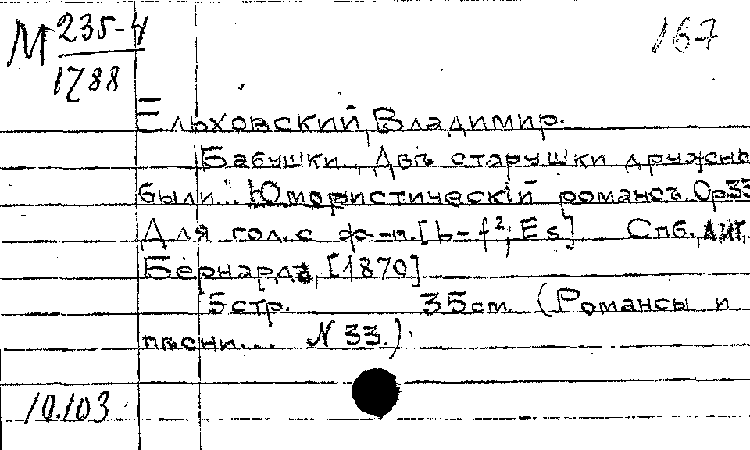 М 235-4
1788
167
Ельховский, Владимир.
Бабушки. „Двѣ старушки дружнь
были". Юмористическiй романсъ. Ор33
Для гол. с ф-п. [b-f²; Es] Спб., лит.
Бернарда, [1870]
5 стр. 35 см. (Романсы и
пѣсни... N 33.).
10.103